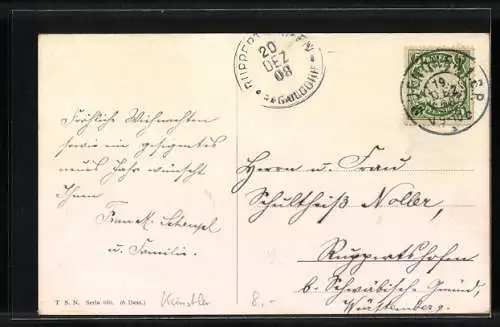 RUPPERTSHOFEN
20
DEZ
08
* GAILDORF *
19
DEZ
Fröhliche Weihnachten
sowie ein gesegnetes
neues Jahr wünscht
Ihnen
u. Familie.
Herrn u. Frau
Schultheiß Noller,
Ruppertshofen
b. Schwäbische Gmünd,
Württemberg.
T. S. N. Serie (6 Dess.)
Künstler
8.-